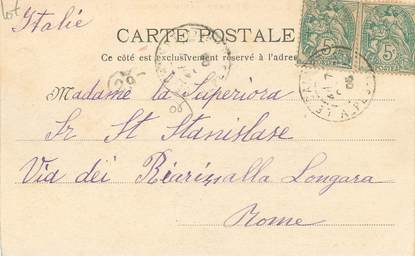 lot
Italie
CARTE POSTALE
Ce côté est exclusivement réservé à l'adre
5c 5c
Madame la Superiora
Sr St Stanislase
Via dei Riari alla Longara
Rome